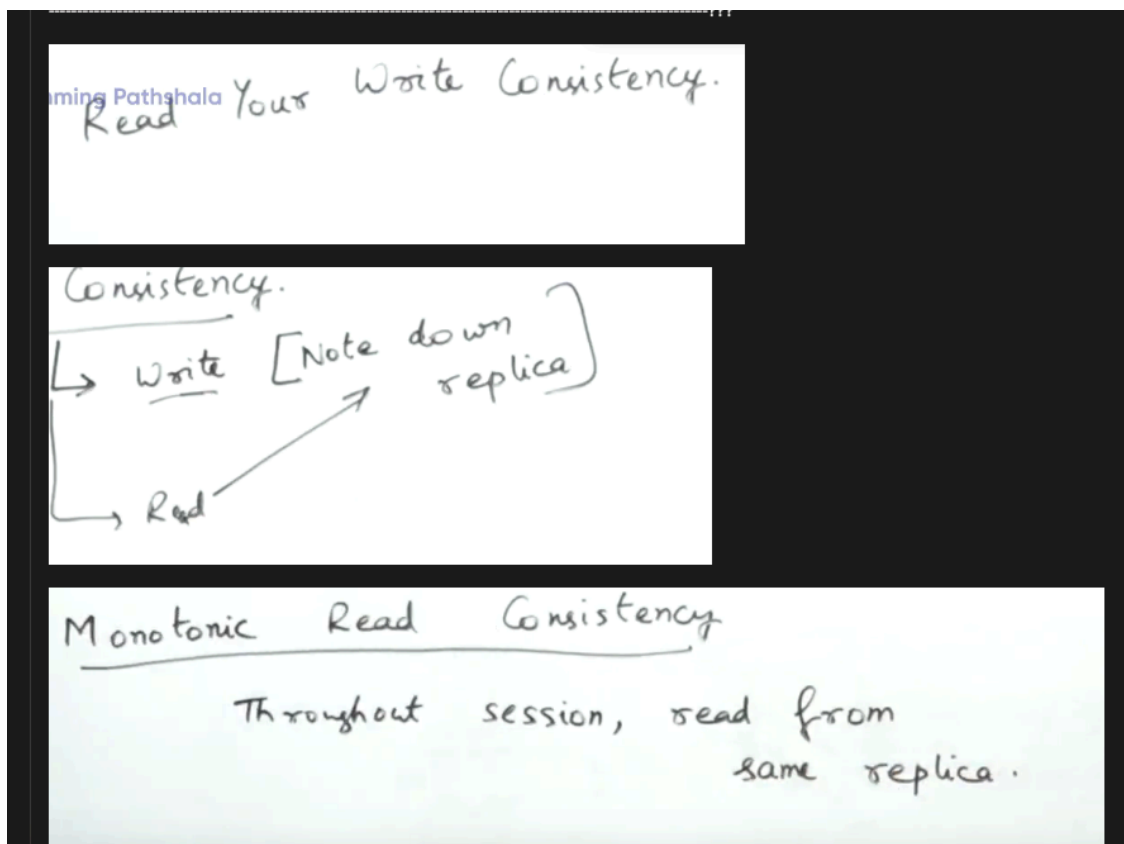 Read Your Write Consistency.
ming Pathshala
Consistency.
Write [Note down
replica]
Read
Monotonic Read Consistency
Throughout session, read from
same replica.